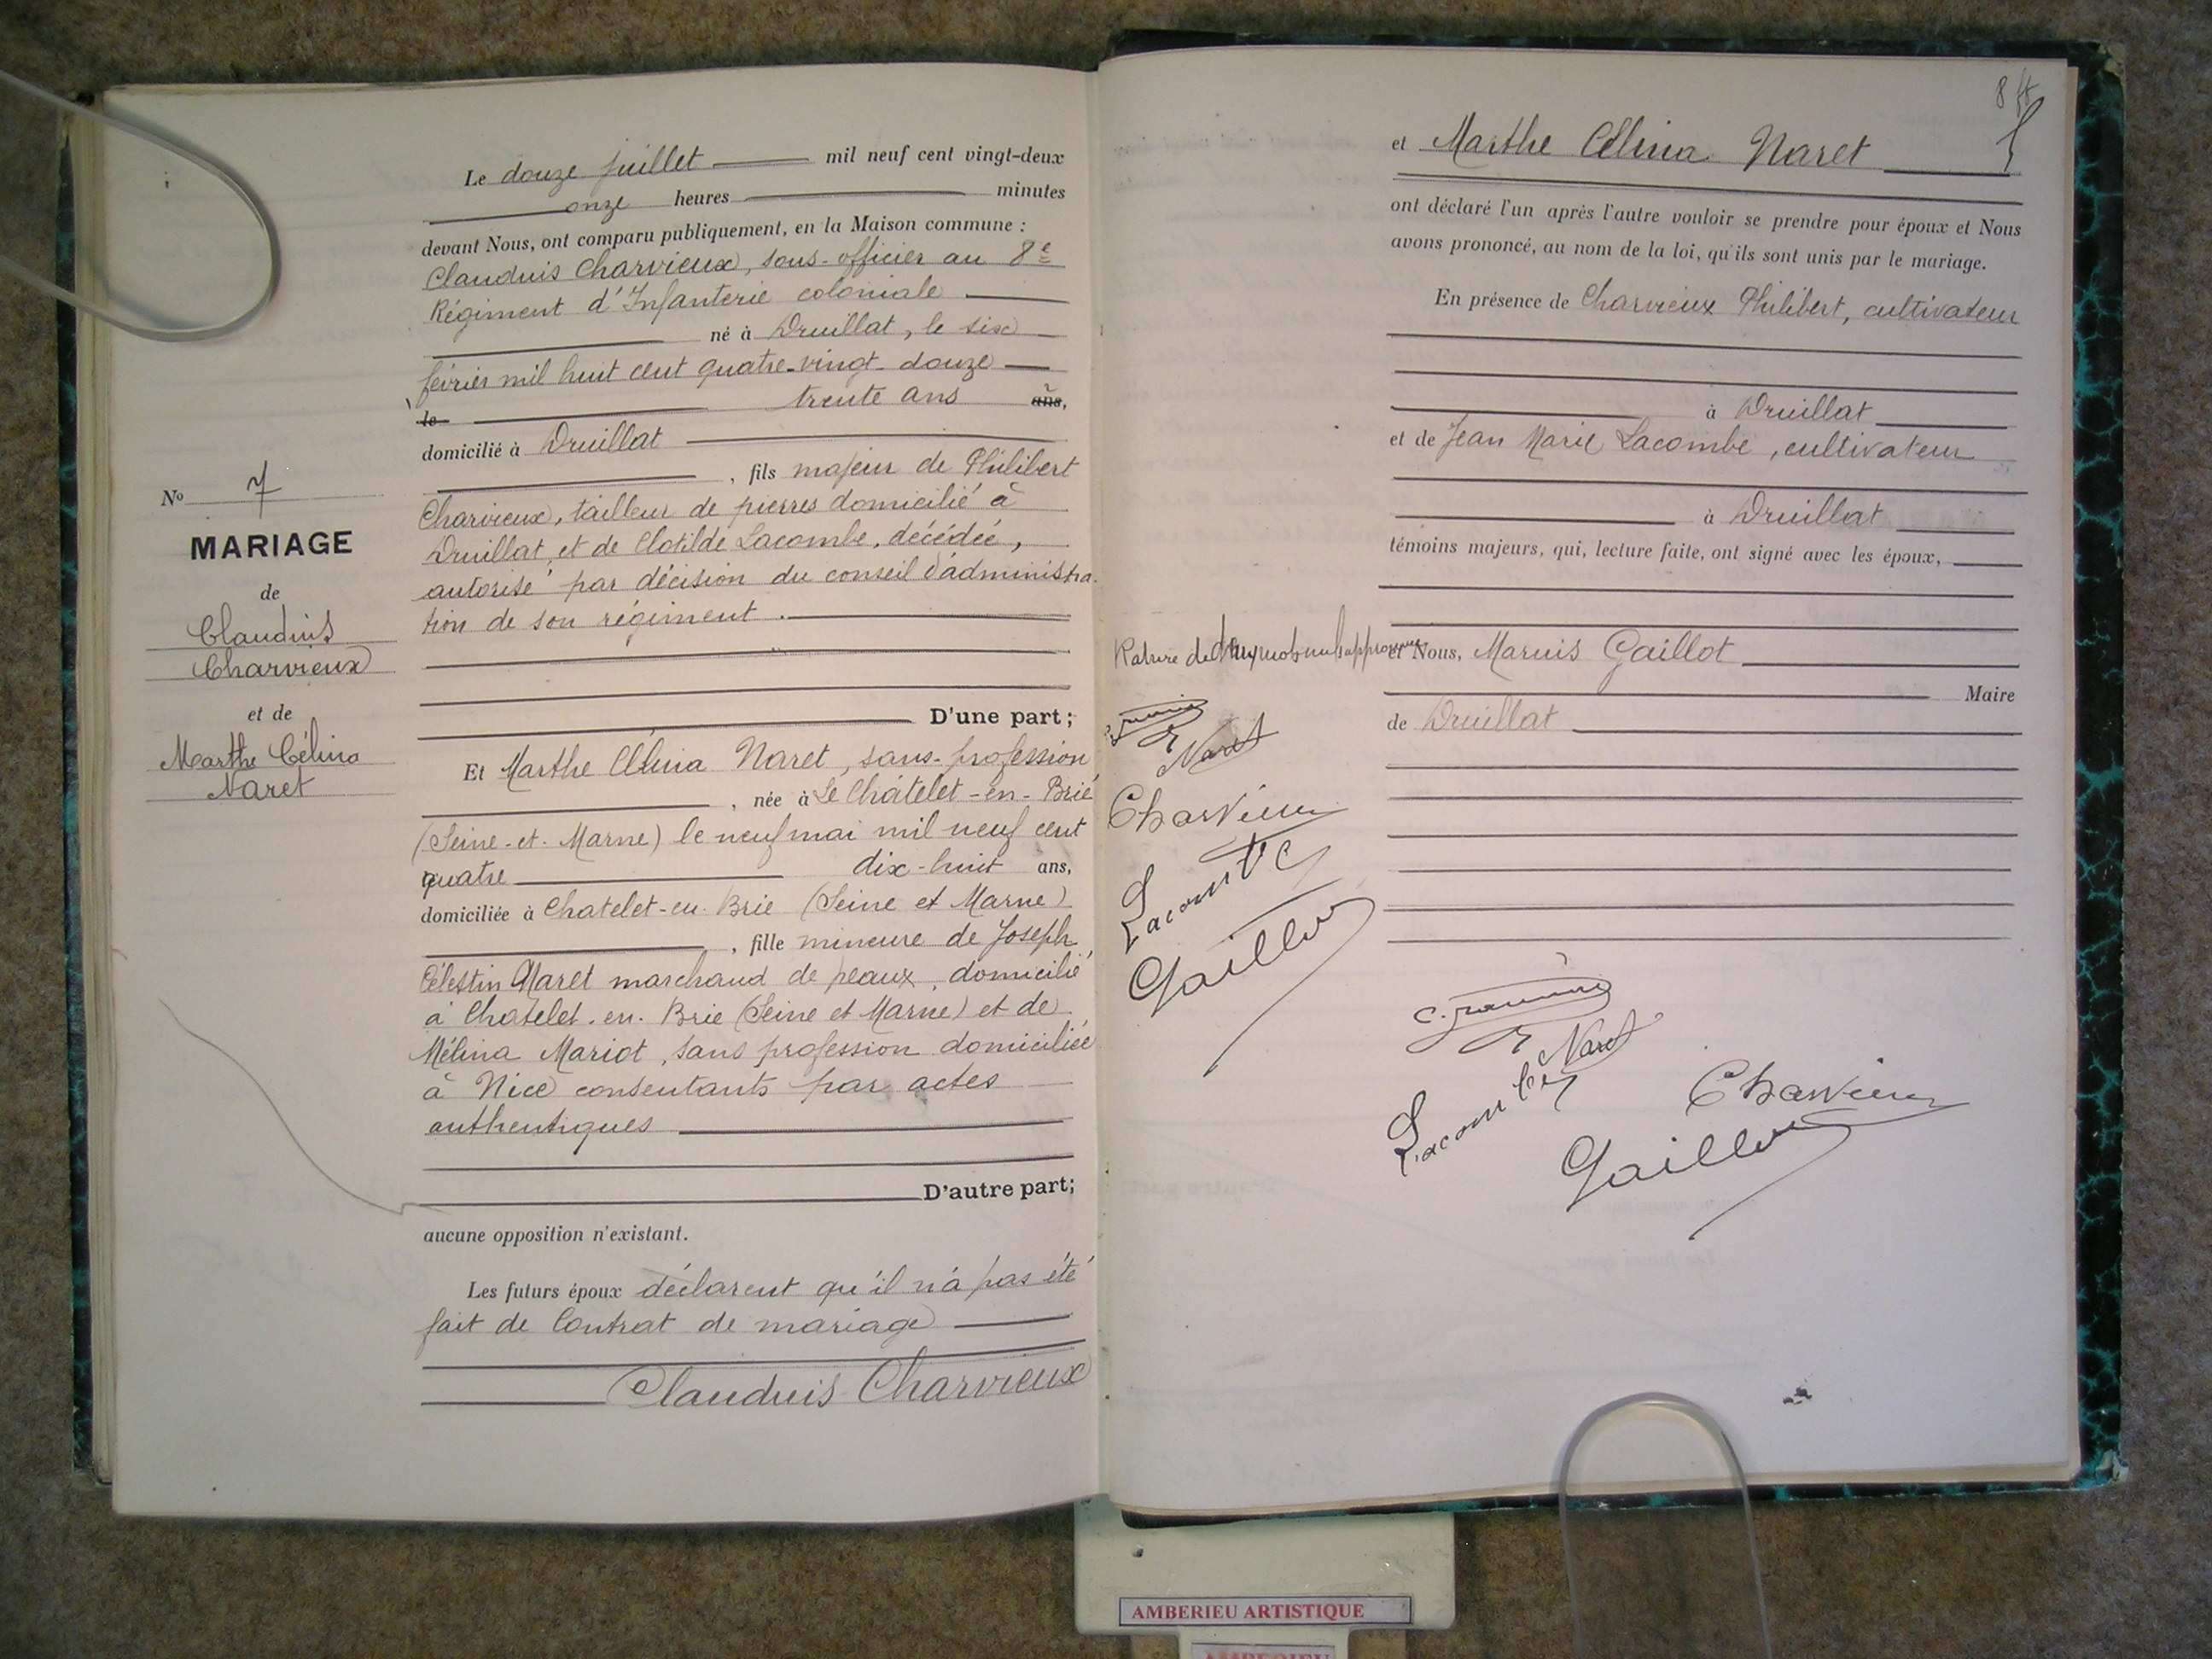 Le douze juillet mil neuf cent vingt-deux
onze heures minutes
devant Nous, ont comparu publiquement, en la Maison commune :
Claudius Charvieux, sous-officier au 8e
Régiment d'Infanterie coloniale
né à Druillat, le six
février mil huit cent quatre-vingt douze
le trente ans ans,
domicilié à Druillat
, fils majeur de Philibert
Charvieux, tailleur de pierres domicilié à
Druillat, et de Clotilde Lacombe, décédée,
autorisé par décision du conseil d'administra-
tion de son régiment.
D'une part;
No 7
MARIAGE
de
Claudius
Charvieux
et de
Marthe Célina
Naret
Et Marthe Célina Naret, sans profession
, née à Le Châtelet-en-Brie
(Seine-et-Marne) le neuf mai mil neuf cent
quatre dix-huit ans,
domiciliée à Chatelet-en-Brie (Seine et Marne)
, fille mineure de Joseph
Célestin Naret marchand de peaux, domicilié
à Chatelet-en-Brie (Seine et Marne) et de
Mélina Mariot, sans profession domiciliée
à Nice consentants par actes
authentiques
D'autre part;
aucune opposition n'existant.
Les futurs époux déclarent qu'il n'a pas été
fait de Contrat de mariage
Claudius Charvieux
8
et Marthe Célina Naret
ont déclaré l'un après l'autre vouloir se prendre pour époux et Nous
avons prononcé, au nom de la loi, qu'ils sont unis par le mariage.
En présence de Charvieux Philibert, cultivateur
à Druillat
et de Jean Marie Lacombe, cultivateur
à Druillat
témoins majeurs, qui, lecture faite, ont signé avec les époux,
et Nous, Marius Gaillot
Maire
de Druillat
Rature de deux mots nuls
Naret
Charvieux
Lacombe
Gaillot
Naret
Lacombe
Charvieux
Gaillot
AMBERIEU ARTISTIQUE
AMBERIEU